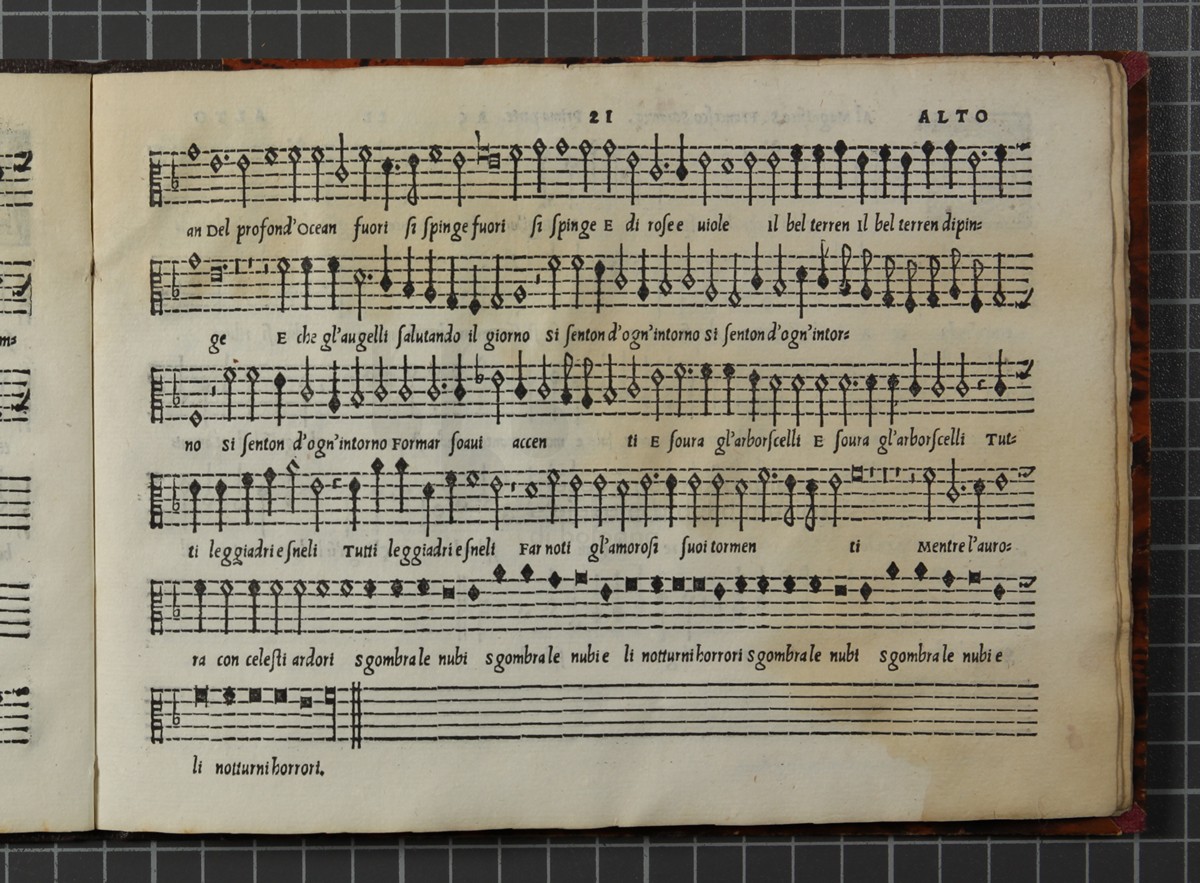 21 ALTO
an Del profond'Ocean fuori si ſpinge fuori si ſpinge E di roſe e uiole Il bel terren Il bel terren dipin=
ge E che gl'augelli ſalutando il giorno si ſenton d'ogn'intorno si ſenton d'ogn'intor=
no si ſenton d'ogn'intorno Formar ſoaui accen ti E ſoura gl'arborſcelli E ſoura gl'arborſcelli Tut=
ti leggiadri e ſneli Tutti leggiadri e ſneli Far noti gl'amoroſi ſuoi tormen ti Mentre l'auro=
ra con celeſti ardori sgombra le nubi sgombra le nubi e li notturni horrori sgombra le nubi sgombra le nubi e
li notturni horrori.